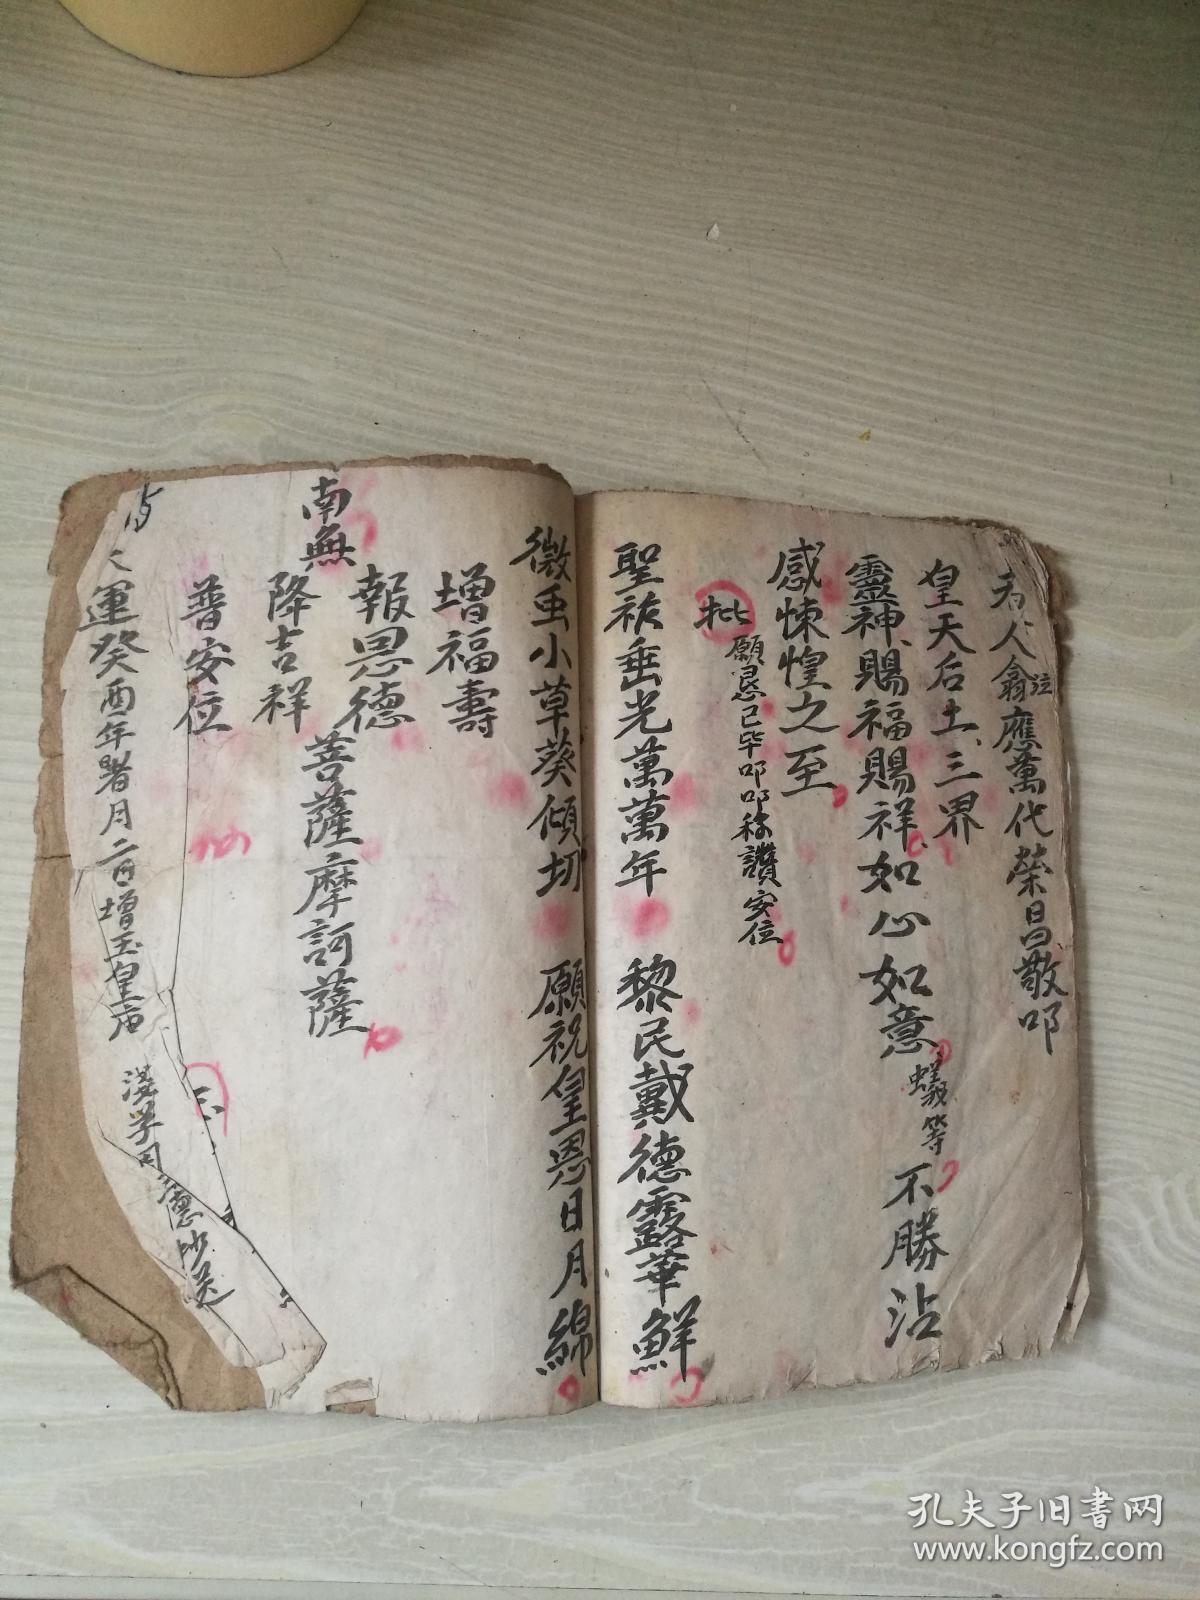 人翕應萬代榮昌敬叩
注
皇天后土三界
靈神賜福賜祥如心如意蟻等不勝沾
感悚惶之至
批願恳已毕叩叩称讚安位
聖祚垂光萬萬年 黎民戴德露華鮮
微虫小草葵傾切 願祝皇恩日月綿
增福壽
報恩德
南無 菩薩摩訶薩
降吉祥
普安位
運癸酉年署月二日增玉皇庙
德抄送
孔夫子旧书网
www.kongfz.com